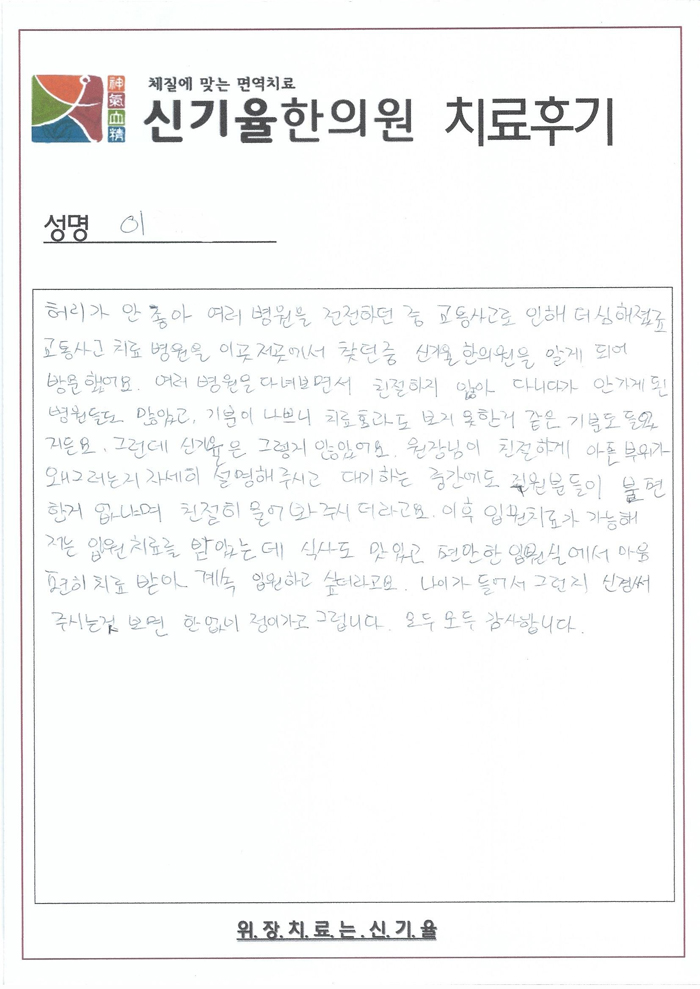 神氣血精
체질에 맞는 면역치료
신기율한의원 치료후기
성명 이
허리가 안 좋아 여러 병원을 전전하던 중 교통사고로 인해 더 심해졌죠
교통사고 치료 병원을 이곳저곳에서 찾던중 신기율한의원을 알게 되어
방문했어요. 여러 병원을 다녀보면서 친절하지 않아 다니다가 안가게 된
병원들도 많았고, 기분이 나쁘니 치료효과도 보지 못한거 같은 기분도 들
지든요. 그런데 신기율은 그렇지 않았어요. 원장님이 친절하게 아픈 부위가
왜그러는지 자세히 설명해주시고 대기하는 중간에도 직원분들이 불편
한거 없냐며 친절히 물어봐주시더라고요. 이후 입원치료가 가능해
저는 입원치료를 받았는데 식사도 맛있고 편안한 입원실에서 마음
편히 치료 받아 계속 입원하고 싶더라고요. 나이가 들어서 그런지 신경써
주시는걸 보면 한없이 정이가고 그럽니다. 모두 모두 감사합니다.
위.장.치.료.는.신.기.율